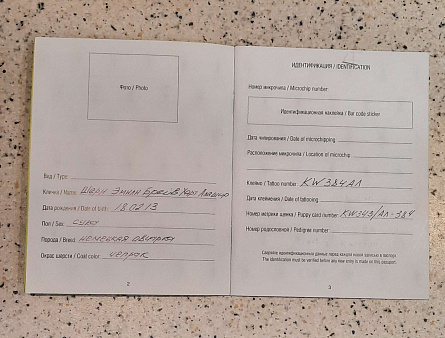 Фото / Photo
Вид / Type
Кличка / Name Шарм Эмили Брейв Харт
Дата рождения / Date of birth 18.02.13
Пол / Sex сука
Порода / Breed немецкая овчарка
Окрас шерсти / Coat color чепрак
2
ИДЕНТИФИКАЦИЯ / IDENTIFICATION
Номер микрочипа / Microchip number
Идентификационная наклейка / Bar code sticker
Дата чипирования / Date of microchipping
Расположение микрочипа / Location of microchip
Клеймо / Tattoo number KW384АЛ
Дата клеймения / Date of tattooing
Номер метрики щенка / Puppy card number KW343/АЛ-384
Номер родословной / Pedigree number
Сверьте идентификационные данные перед каждой новой записью в паспорт
The identification must be verified before any new entry is made on this passport.
3